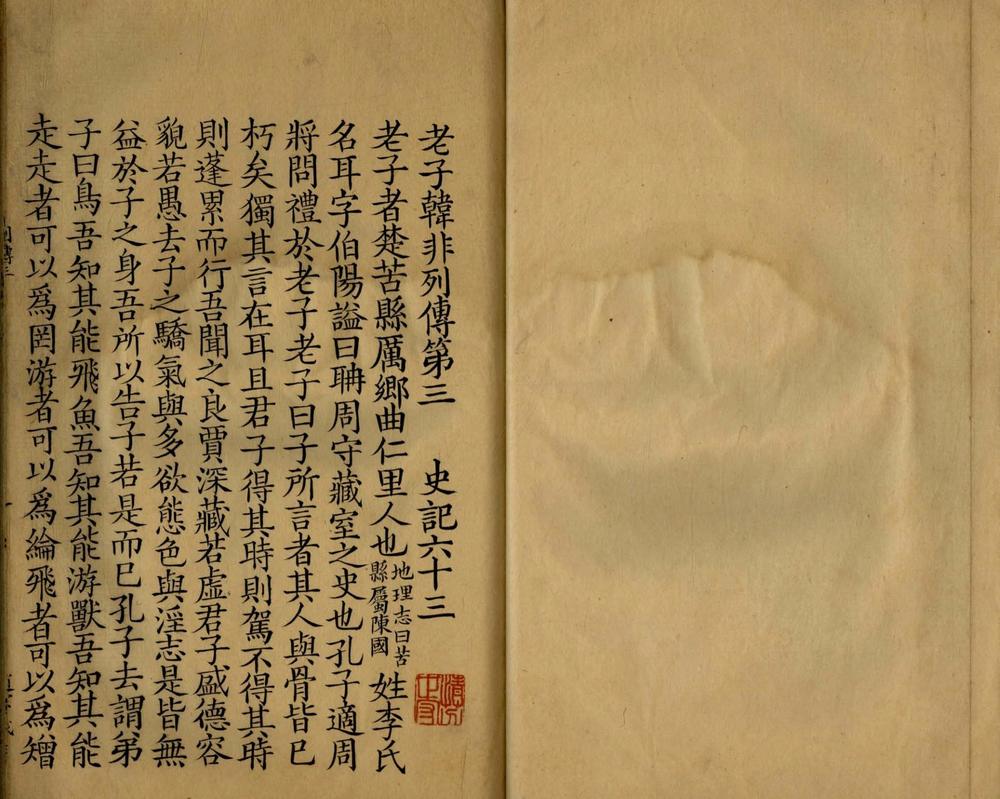 老子韓非列傳第三 史記六十三
老子者楚苦縣厲鄉曲仁里人也地理志曰苦縣屬陳國姓李氏
名耳字伯陽謚曰聃周守藏室之史也孔子適周
將問禮於老子老子曰子所言者其人與骨皆已
朽矣獨其言在耳且君子得其時則駕不得其時
則蓬累而行吾聞之良賈深藏若虛君子盛德容
貌若愚去子之驕氣與多欲態色與淫志是皆無
益於子之身吾所以告子若是而已孔子去謂弟
子曰鳥吾知其能飛魚吾知其能游獸吾知其能
走走者可以爲罔游者可以爲綸飛者可以爲矰